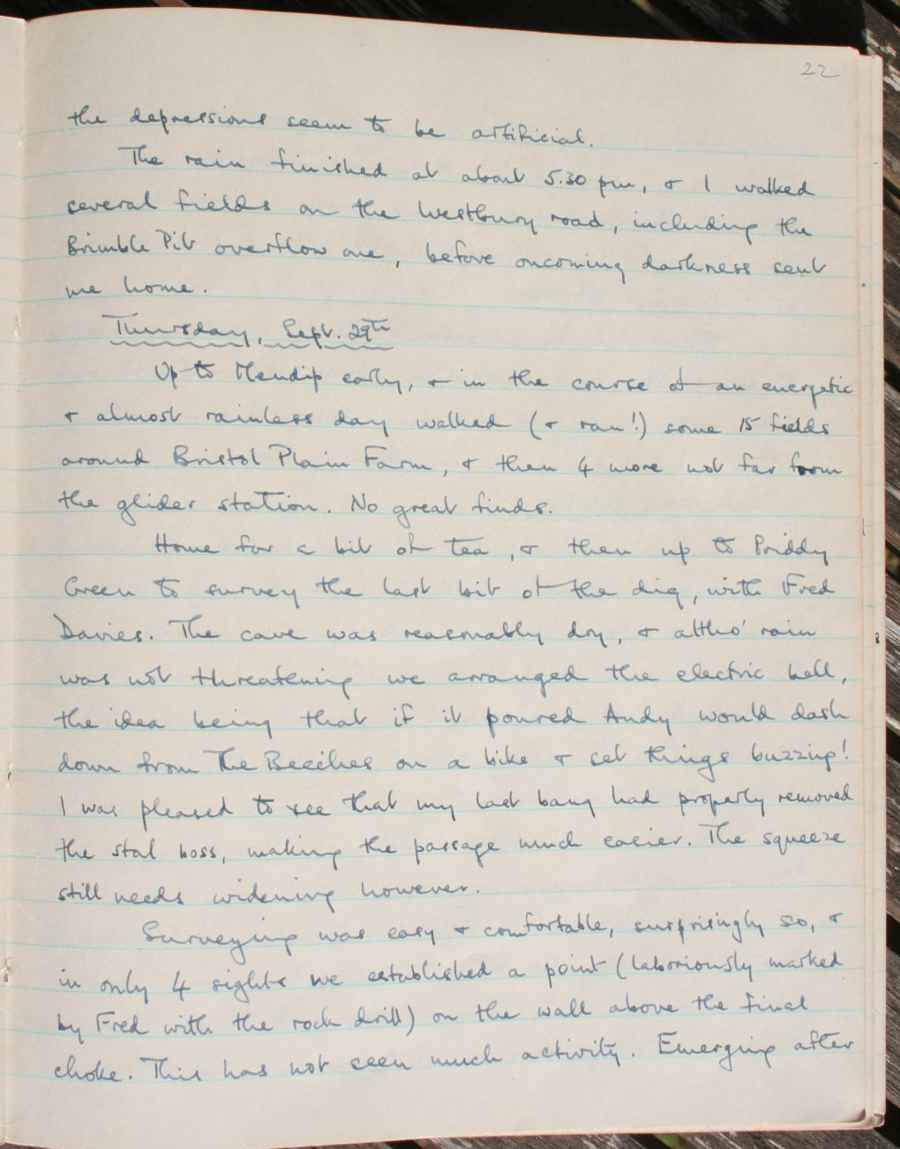 22
the depressions seem to be artificial.
The rain finished at about 5.30 pm, & I walked
several fields on the Westbury road, including the
Brimble Pit overflow one, before oncoming darkness sent
me home.
Thursday, Sept. 29th
Up to Mendip early, & in the course of an energetic
& almost rainless day walked (& ran!) some 15 fields
around Bristol Plain Farm, & then 4 more not far from
the glider station. No great finds.
Home for a bit of tea, & then up to Priddy
Green to survey the last bit of the dig, with Fred
Davies. The cave was reasonably dry, & altho' rain
was not threatening we arranged the electric bell,
the idea being that if it poured Andy would dash
down from The Beeches on a bike & set things buzzing!
I was pleased to see that my last bang had properly removed
the stal boss, making the passage much easier. The squeeze
still needs widening however.
Surveying was easy & comfortable, surprisingly so, &
in only 4 sights we established a point (laboriously marked
by Fred with the rock drill) on the wall above the final
choke. This has not seen much activity. Emerging after